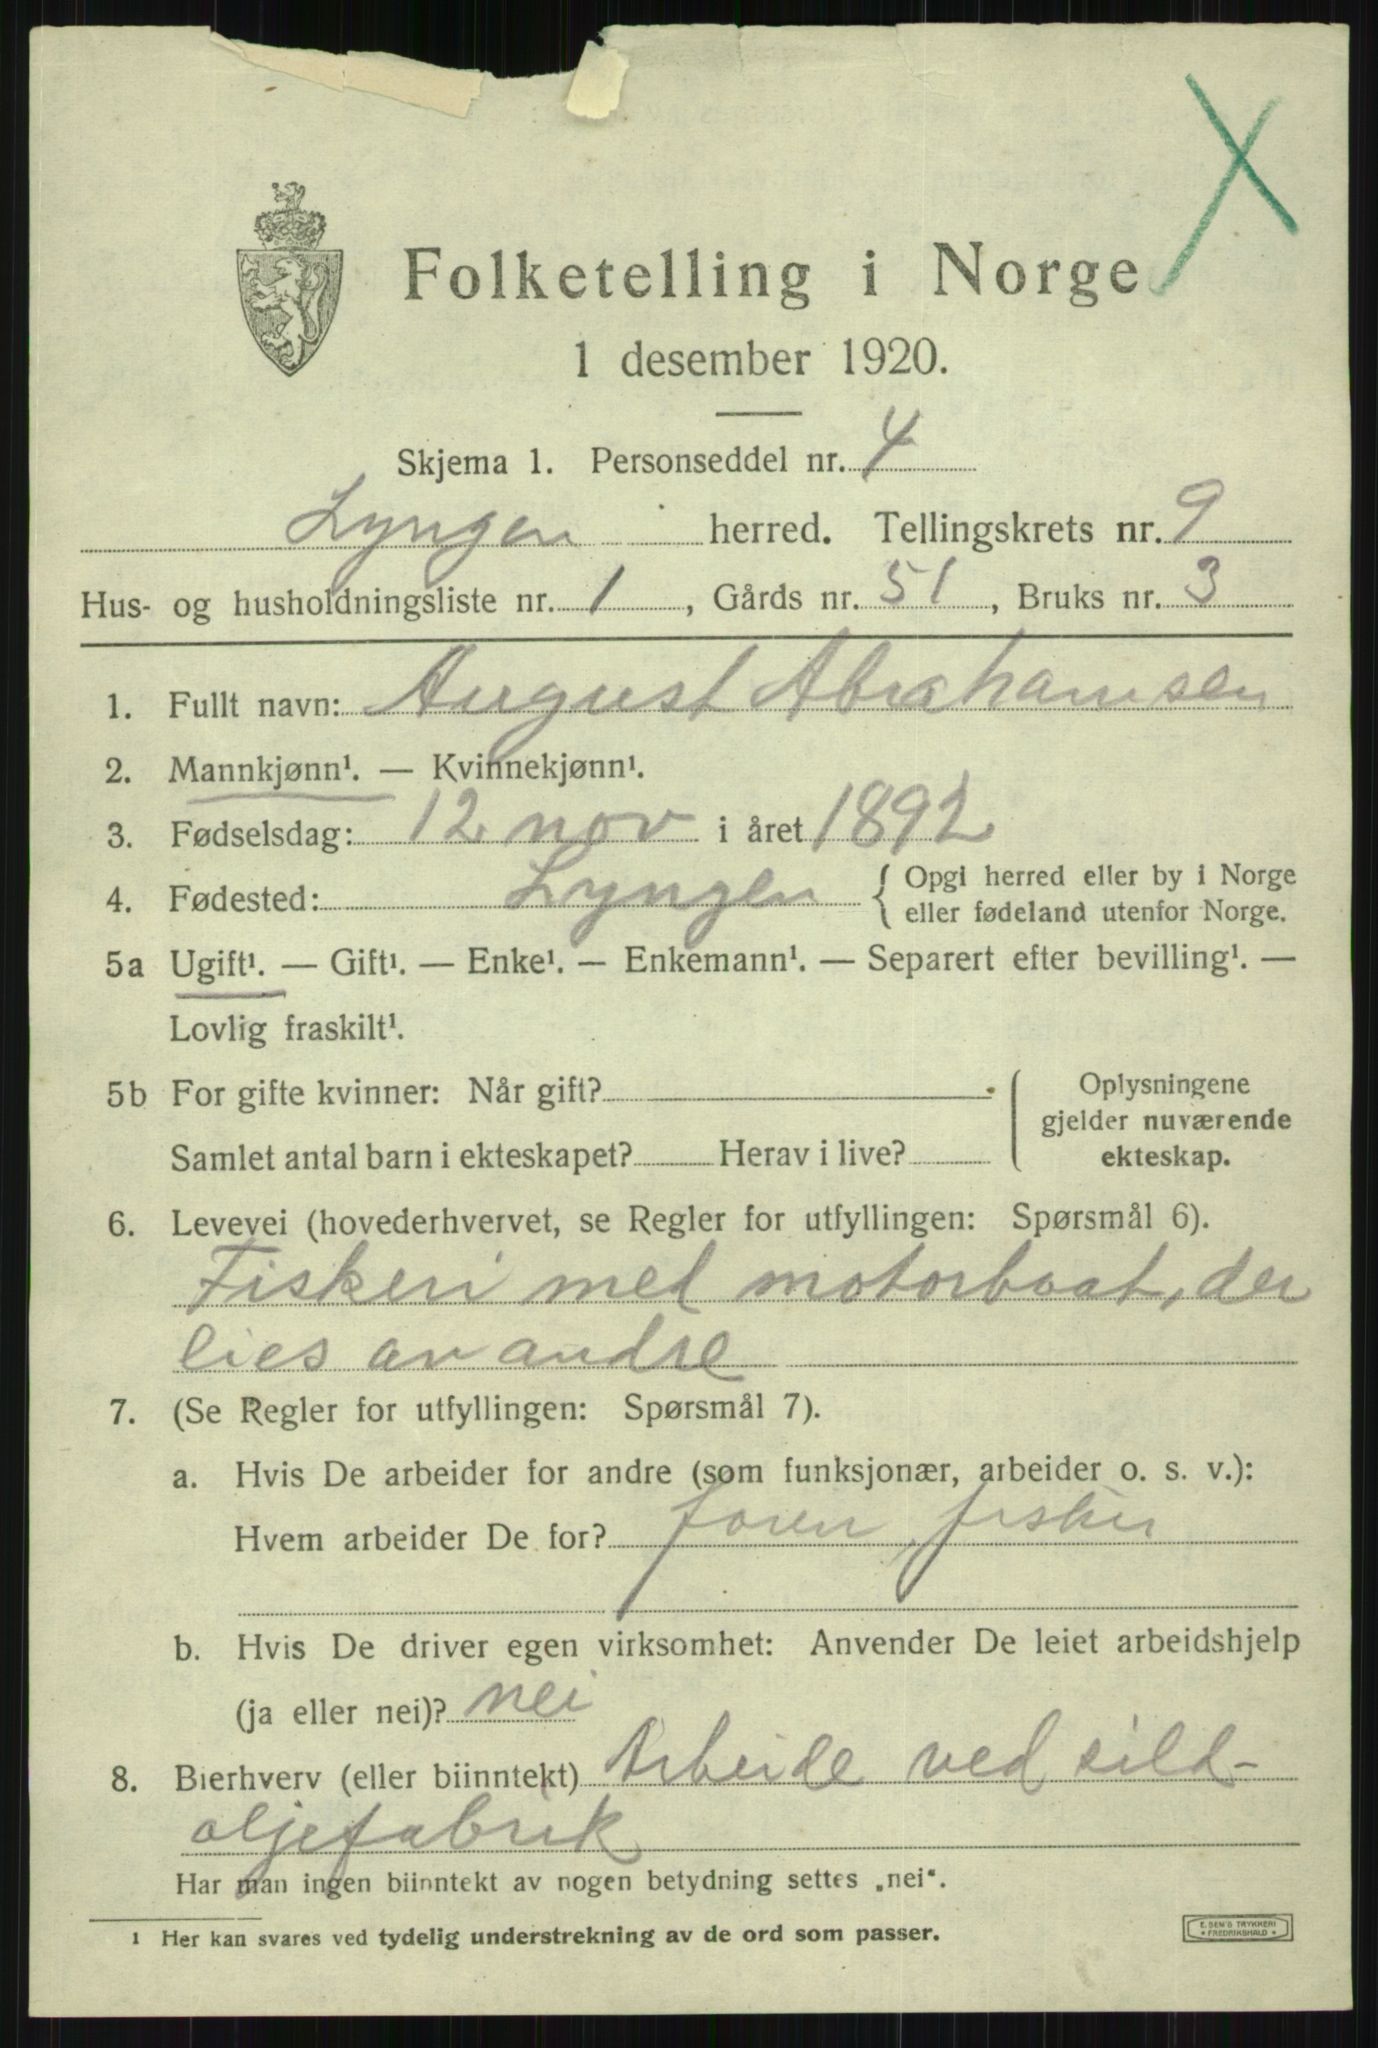 Folketelling i Norge
1 desember 1920.
Skjema 1. Personseddel nr. 4
Lyngen herred. Tellingskrets nr. 9
Hus- og husholdningsliste nr. 1, Gårds nr. 51, Bruks nr. 3
1. Fullt navn: August Abrahamsen
2. Mannkjønn¹. — Kvinnekjønn¹.
3. Fødselsdag: 12 nov i året 1892
4. Fødested: Lyngen { Opgi herred eller by i Norge
eller fødeland utenfor Norge.
5a Ugift¹. — Gift¹. — Enke¹. — Enkemann¹. — Separert efter bevilling¹. —
Lovlig fraskilt¹.
5b For gifte kvinner: Når gift?
Samlet antal barn i ekteskapet? Herav i live?
Oplysningene
gjelder nuværende
ekteskap.
6. Levevei (hovederhvervet, se Regler for utfyllingen: Spørsmål 6).
Fiskeri med motorbaat, der
eies av andre
7. (Se Regler for utfyllingen: Spørsmål 7).
a. Hvis De arbeider for andre (som funksjonær, arbeider o. s. v.):
Hvem arbeider De for? fisker
b. Hvis De driver egen virksomhet: Anvender De leiet arbeidshjelp
(ja eller nei)? nei
8. Bierhverv (eller biinntekt) Arbeide ved sild-
oljefabrik
Har man ingen biinntekt av nogen betydning settes „nei“.
1 Her kan svares ved tydelig understrekning av de ord som passer.
E. SEM'S TRYKKERI
* FREDRIKSHALD *